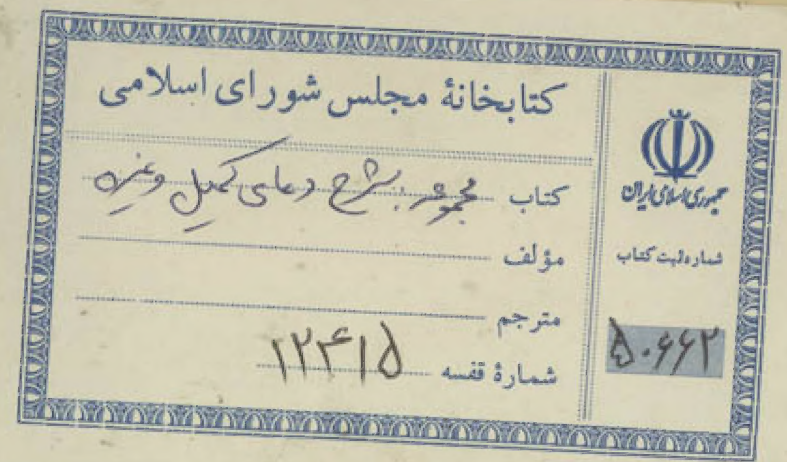 کتابخانهٔ مجلس شورای اسلامی
کتاب مجموعه: شرح دعای کمیل وغیره
مؤلف
مترجم
شمارهٔ قفسه ۱۲۴۱۵
جمهوری اسلامی ایران
شماره ثبت کتاب
۵۰۶۶۲